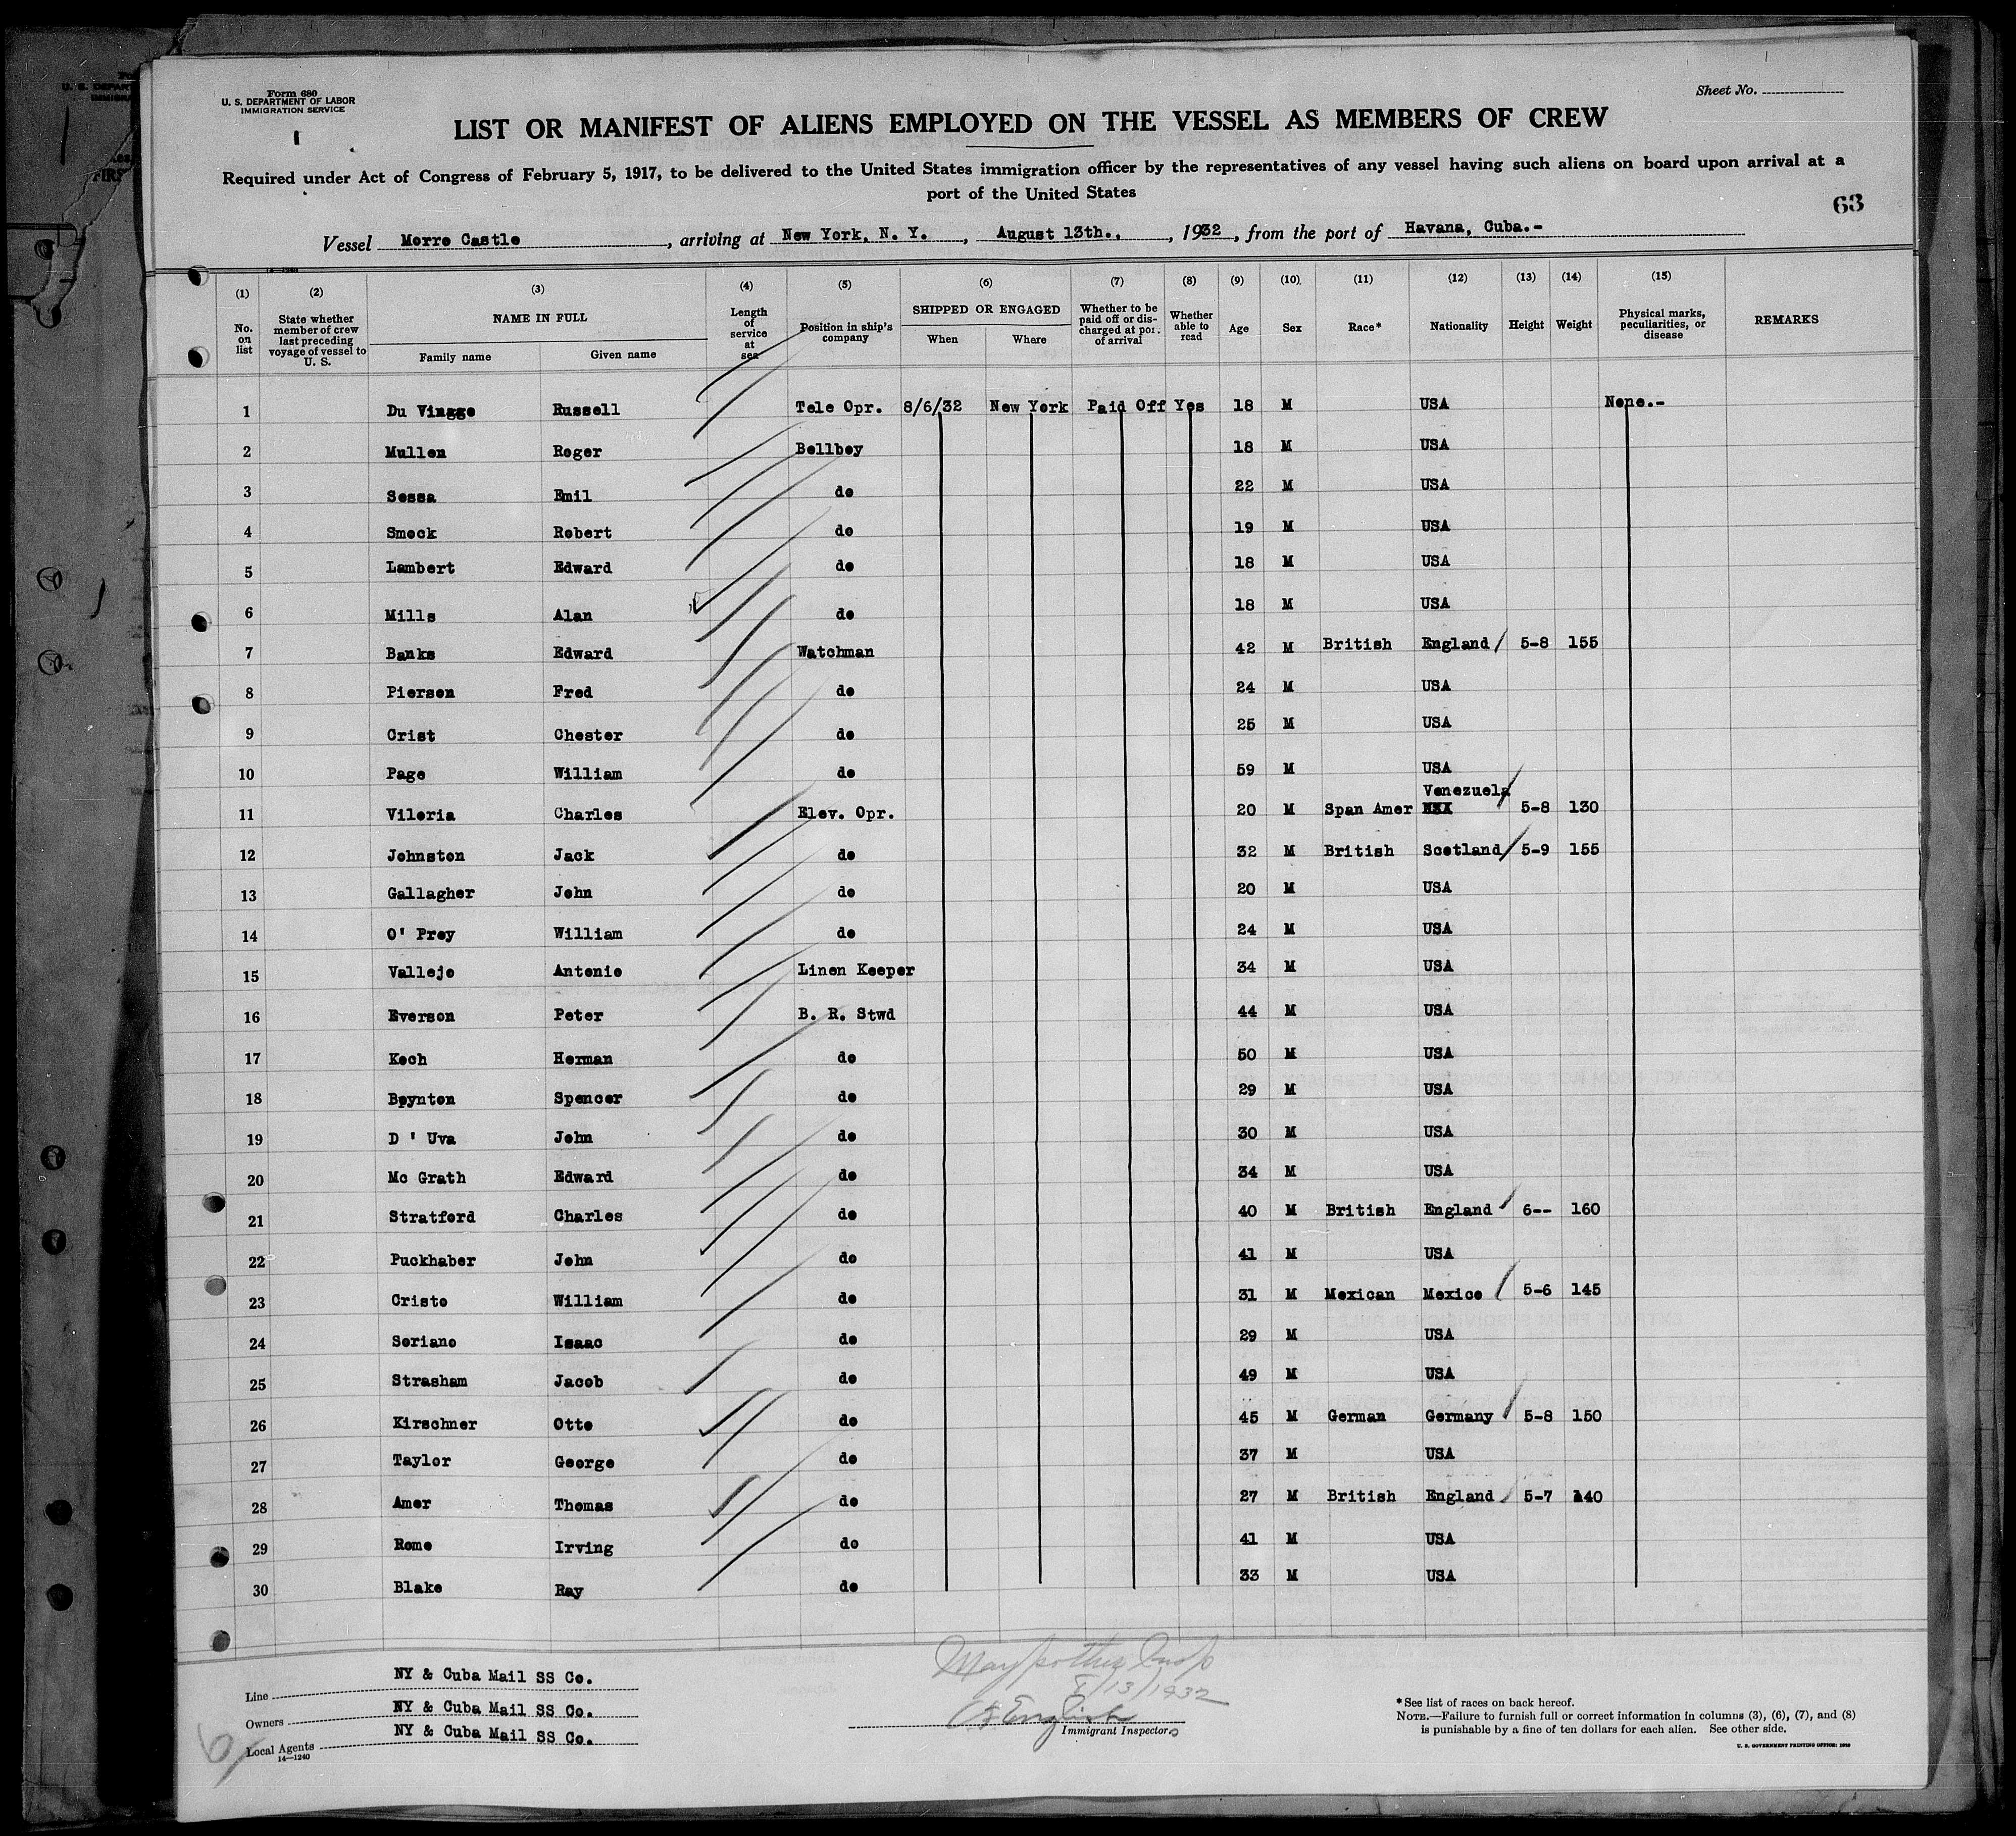 Form 680
U. S. DEPARTMENT OF LABOR
IMMIGRATION SERVICE
Sheet No.
LIST OR MANIFEST OF ALIENS EMPLOYED ON THE VESSEL AS MEMBERS OF CREW
Required under Act of Congress of February 5, 1917, to be delivered to the United States immigration officer by the representatives of any vessel having such aliens on board upon arrival at a
port of the United States
63
Vessel Morro Castle, arriving at New York, N. Y., August 13th., 1932, from the port of Havana, Cuba.-
(1) (2) (3) (4) (5) (6) (7) (8) (9) (10) (11) (12) (13) (14) (15)
No. on list State whether member of crew last preceding voyage of vessel to U. S. NAME IN FULL Family name Given name Length of service at sea Position in ship's company SHIPPED OR ENGAGED When Where Whether to be paid off or discharged at port of arrival Whether able to read Age Sex Race* Nationality Height Weight Physical marks, peculiarities, or disease REMARKS
1 Du Vinage Russell Tele Opr. 8/6/32 New York Paid Off Yes 18 M USA None.-
2 Mullen Roger Bellboy 18 M USA
3 Sessa Emil do 22 M USA
4 Smock Robert do 19 M USA
5 Lambert Edward do 18 M USA
6 Mills Alan do 18 M USA
7 Banks Edward Watchman 42 M British England 5-8 155
8 Pierson Fred do 24 M USA
9 Crist Chester do 25 M USA
10 Page William do 59 M USA
11 Viloria Charles Elev. Opr. 20 M Span Amer Venezuela 5-8 130
12 Johnston Jack do 32 M British Scotland 5-9 155
13 Gallagher John do 20 M USA
14 O' Prey William do 24 M USA
15 Vallejo Antonio Linen Keeper 34 M USA
16 Everson Peter B. R. Stwd 44 M USA
17 Koch Herman do 50 M USA
18 Boynton Spencer do 29 M USA
19 D ' Uva John do 30 M USA
20 Mc Grath Edward do 34 M USA
21 Stratford Charles do 40 M British England 6-- 160
22 Puckhaber John do 41 M USA
23 Cristo William do 31 M Mexican Mexico 5-6 145
24 Soriano Isaac do 29 M USA
25 Strasham Jacob do 49 M USA
26 Kirschner Otto do 45 M German Germany 5-8 150
27 Taylor George do 37 M USA
28 Amor Thomas do 27 M British England 5-7 140
29 Rome Irving do 41 M USA
30 Blake Ray do 33 M USA
Line NY & Cuba Mail SS Co.
Owners NY & Cuba Mail SS Co.
Local Agents NY & Cuba Mail SS Co.
14—1240
8/13/1932
English
Immigrant Inspector.
*See list of races on back hereof.
NOTE.—Failure to furnish full or correct information in columns (3), (6), (7), and (8)
is punishable by a fine of ten dollars for each alien. See other side.
U. S. GOVERNMENT PRINTING OFFICE: 1930